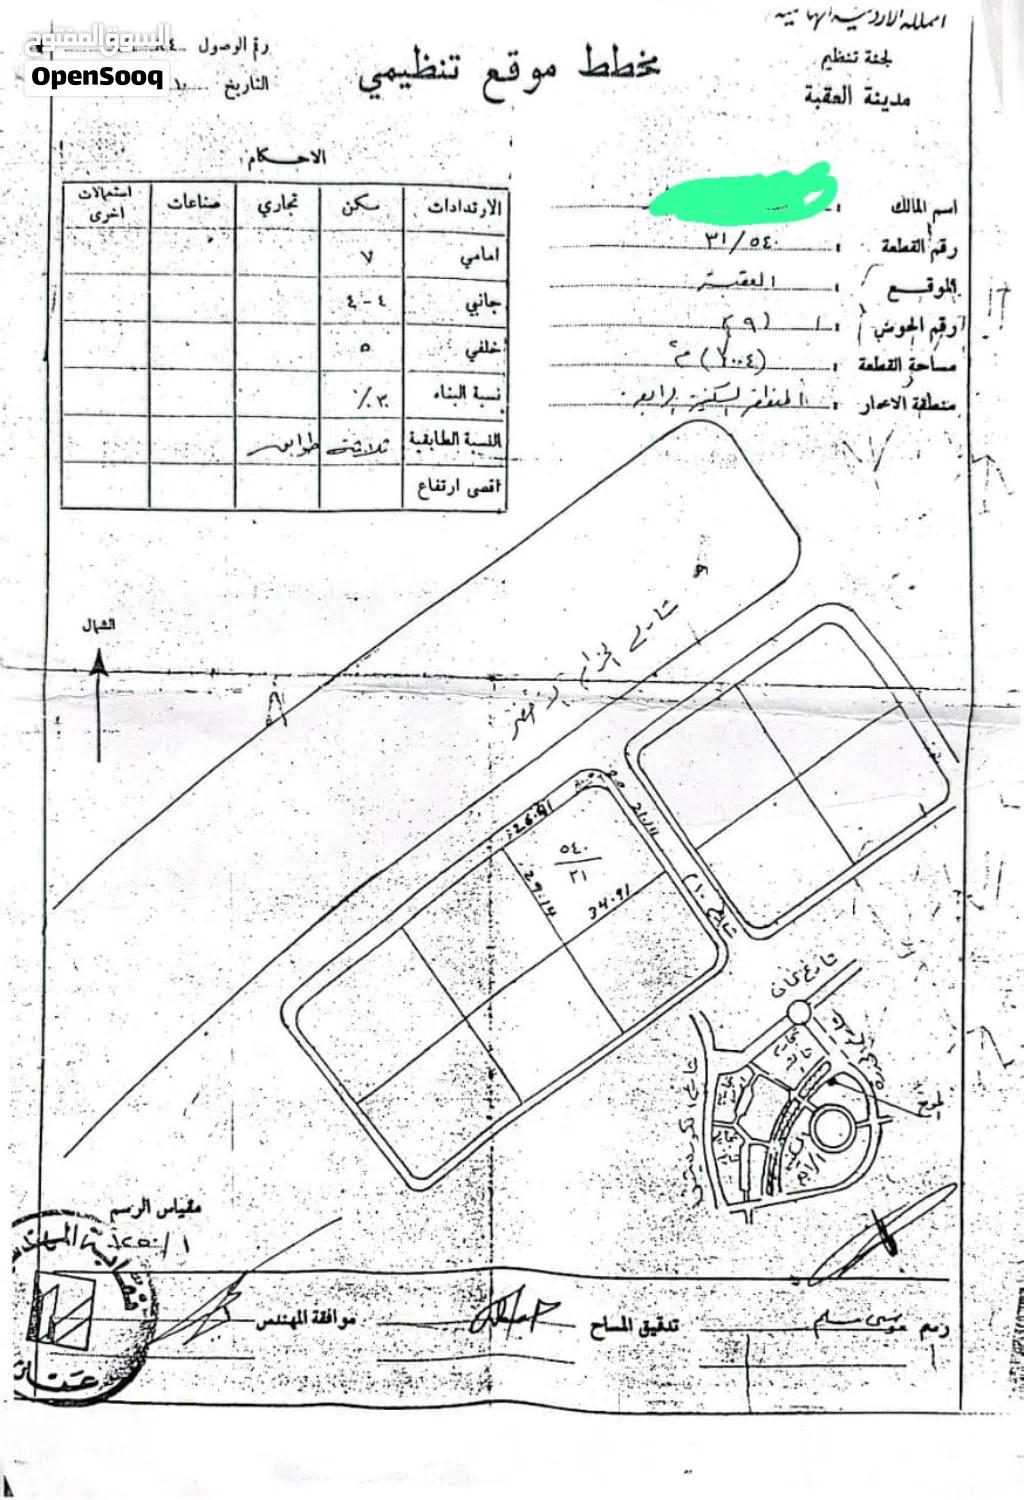 المملكة الاردنية الهاشمية
لجنة تنظيم
مدينة العقبة
مخطط موقع تنظيمي
رقم الوصول
التاريخ
السوق المفتوح
OpenSooq
اسم المالك :
رقم القطعة : ٣١/٥٤٠
الموقع : العقبة
رقم الحوض : (٩)
مساحة القطعة : م٢
منطقة الاعمار :
الاحكام
الارتدادات سكن تجاري صناعات استعمالات اخرى
امامي ٧
جانبي ٤-٤
خلفي ٥
نسبة البناء ٣٠٪
النسبة الطابقية ثلاثة طوابق
اقصى ارتفاع
الشمال
شارع الحزام الاخضر
26.91
٥٤٠
٣١
29.14
34.91
21.11
شارع ١٠م
شارع عمان
مقياس الرسم
رسم موسى مسلم
تدقيق المساح
موافقة المهندس